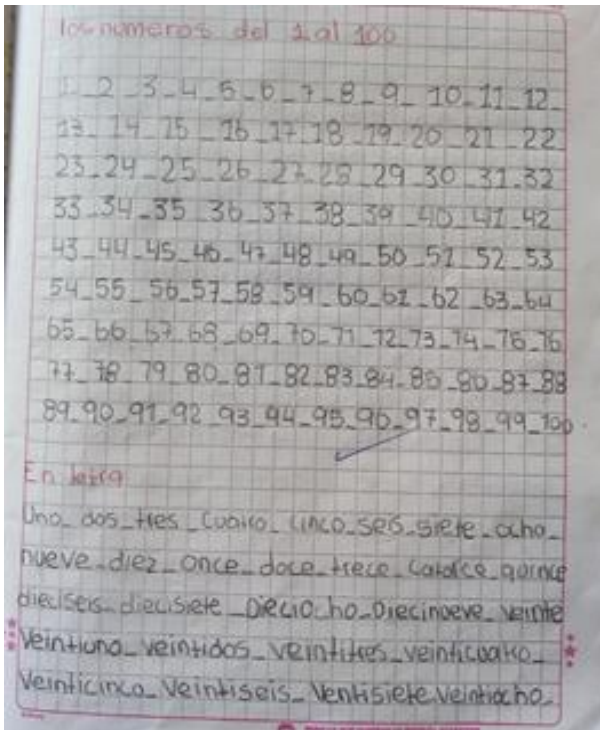 los numeros del 1 al 100
1_2_3_4_5_6_7_8_9_10_11_12_
13_14_15_16_17_18_19_20_21_22
23_24_25_26_27_28_29_30_31_32
33_34_35_36_37_38_39_40_41_42
43_44_45_46_47_48_49_50_51_52_53
54_55_56_57_58_59_60_61_62_63_64
65_66_67_68_69_70_71_72_73_74_75_76
77_78_79_80_81_82_83_84_85_86_87_88
89_90_91_92_93_94_95_96_97_98_99_100.
En letra
Uno_dos_tres_cuatro_cinco_seis_siete_ocho_
nueve_diez_once_doce_trece_catorce_quince
dieciseis_diecisiete_Dieciocho_Diecinueve_veinte
Veintiuno_veintidos_veintitres_veinticuatro_
Veinticinco_Veintiseis_Ventisiete_veintiocho_